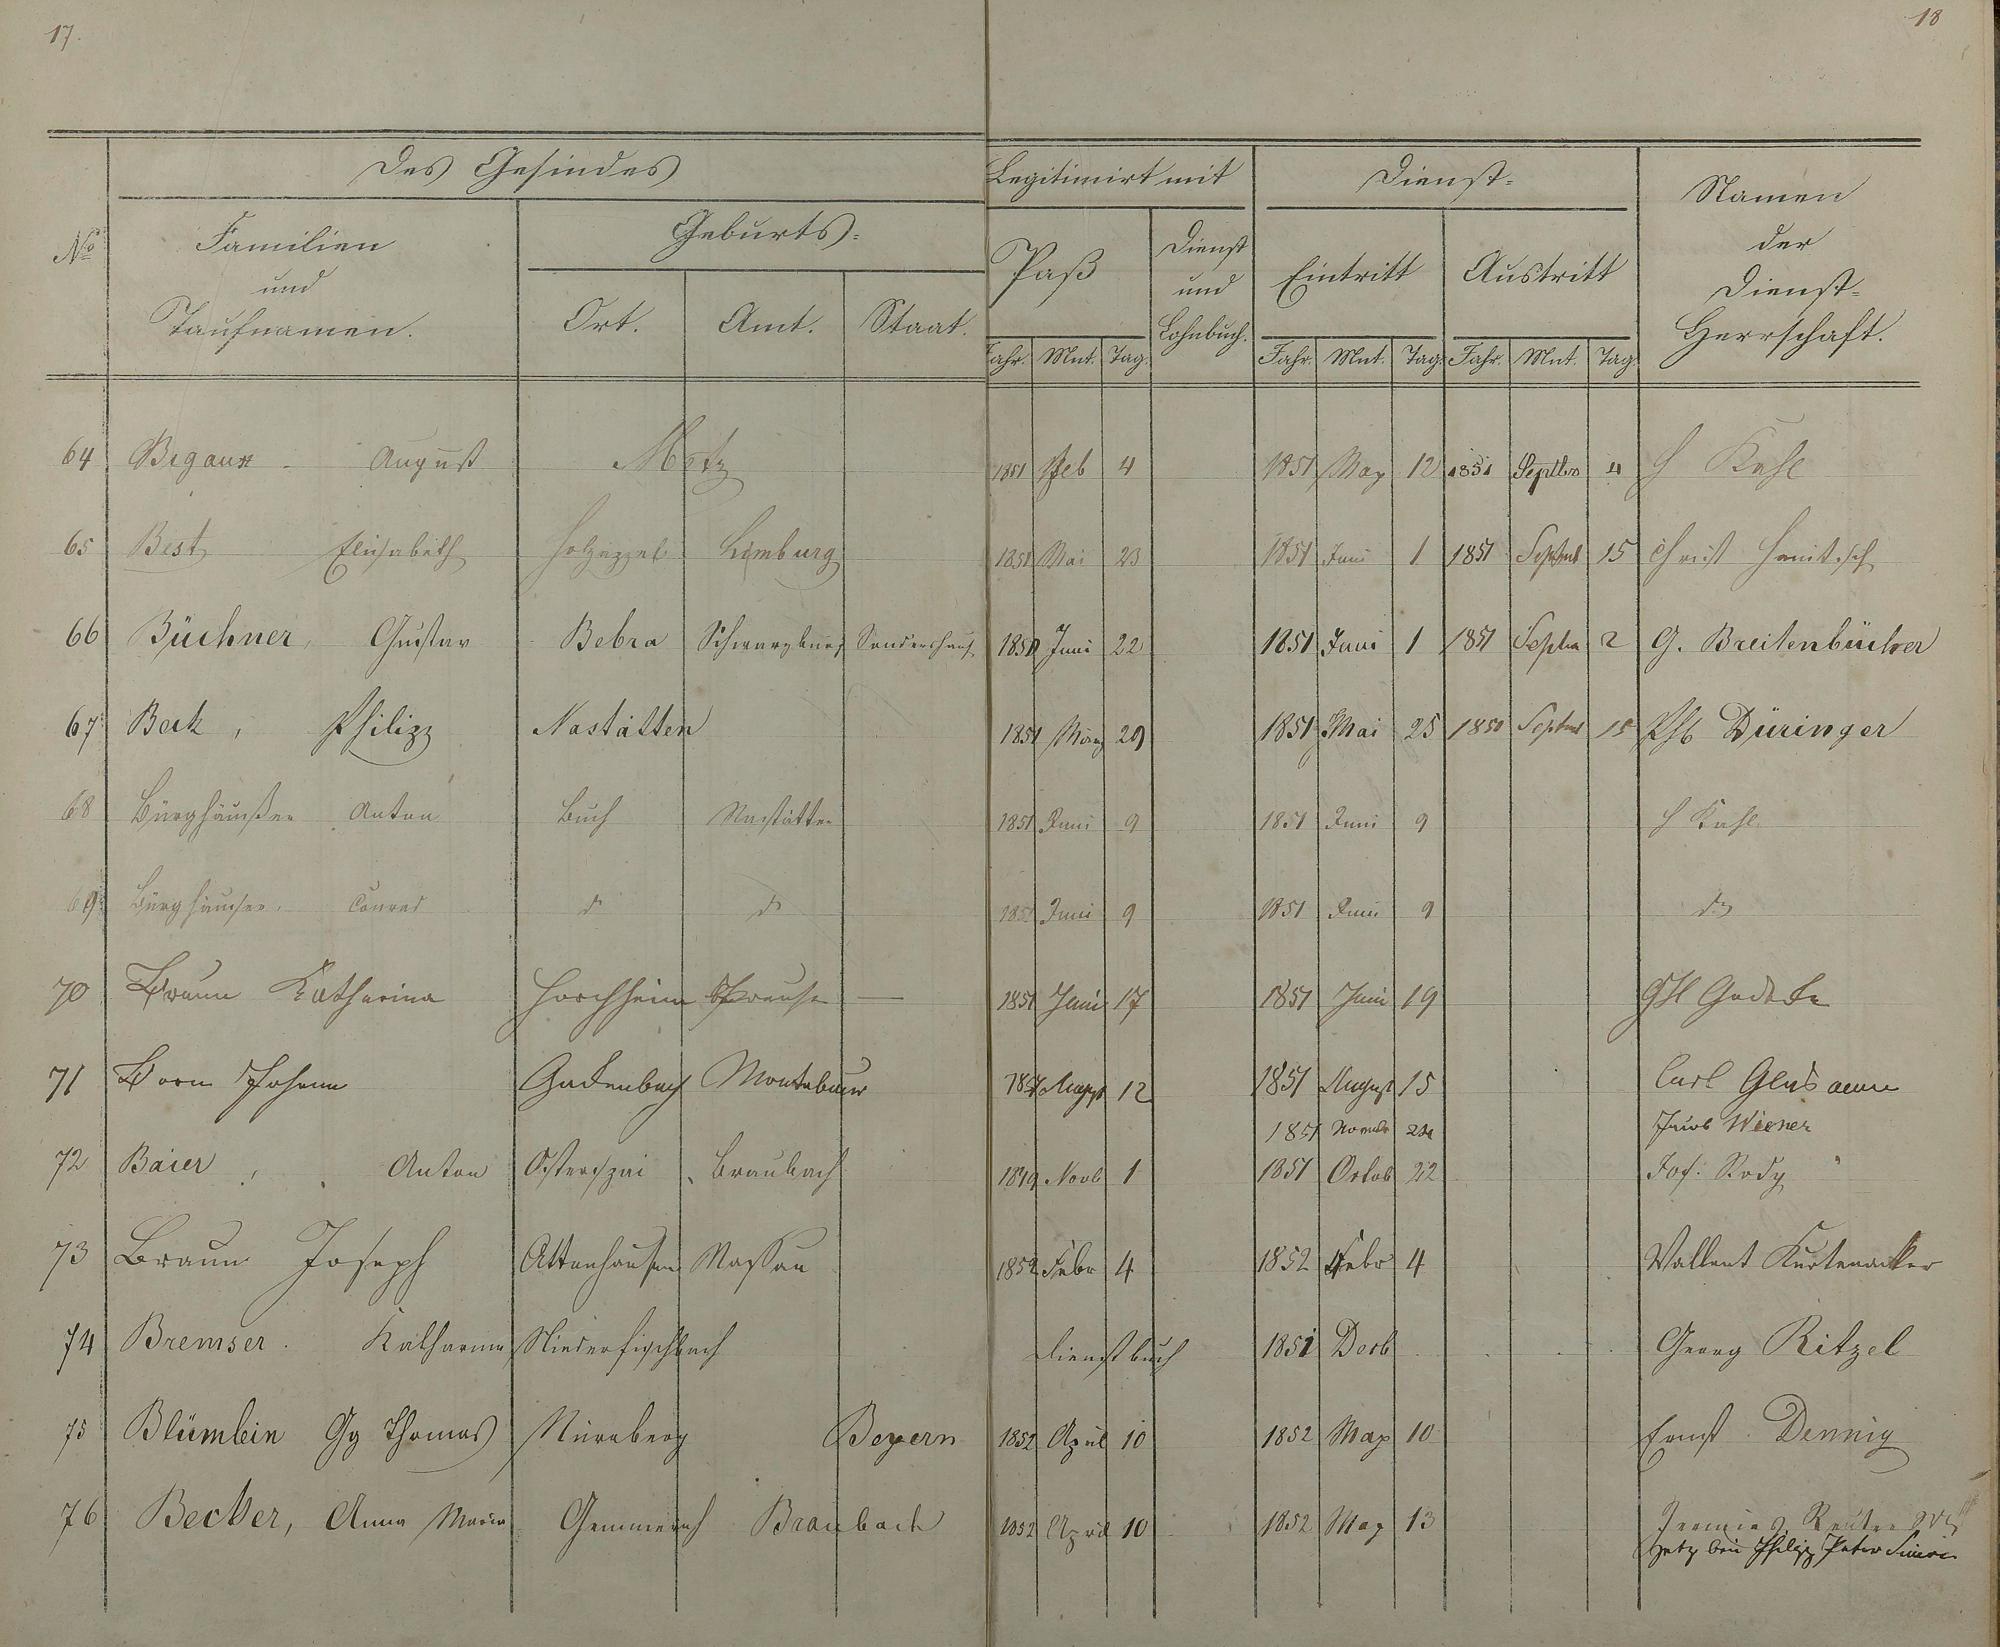 17.
18
Des Gesindes
Legitimirt mit
Dienst-
Namen
der
Dienst-
Herrschaft.
No
Familien
und
Taufnamen.
Geburts-
Ort. Amt. Staat.
Paß
Dienst
und
Lohnbuch.
Eintritt
Austritt
Jahr. Mnt. Tag.
Jahr. Mnt. Tag. Jahr. Mnt. Tag.
64 August Metz 1851 Feb 4 1851 May 12 1851 Septbr 4
65 Best Elisabeth Holzappel Limburg 1851 Mai 23 1851 Juni 1 1851 15 Christ
66 Büchner, Gustav Bebra Schwarzburg Sondershaus 1850 Juni 22 1851 Juni 1 1851 2 G. Breitenbücher
67 Beck, Philipp Nastätten 1851 März 29 1851 Mai 25 15 Phl Düringer
68 Bürghäußer Anton Buch Nastätten 1851 Juni 9 1851 Juni 9
69 Bürghäuser, Conrad do do 1851 Juni 9 1851 Juni 9 do
70 Braun Katharina Horchheim Preußen — 1851 Juni 17 1851 Juni 19
71 Born Johann Gackenbach Montabaur 12 1851 August 15 Carl
1851 Novmbr 24 Jacob Wiener
72 Baier, Anton Osterspai Braubach 1849 Novb 1 1851 Octob 22 Jos: Rody
73 Braun Joseph Attenhausen Nassau 1852 Febr 4 1852 Febr 4 Vallent Kurtenacker
74 Bremser. Katharina Niederfischbach Dienstbuch 1851 Decb Georg Ritzel
75 Blümlein Gg Thomas Nürnberg Beyern 1852 April 10 1852 May 10 Ernst Dennig
76 Becker, Anna Maria Gemmerich Braubach 1852 April 10 1852 May 13
Philipp Peter